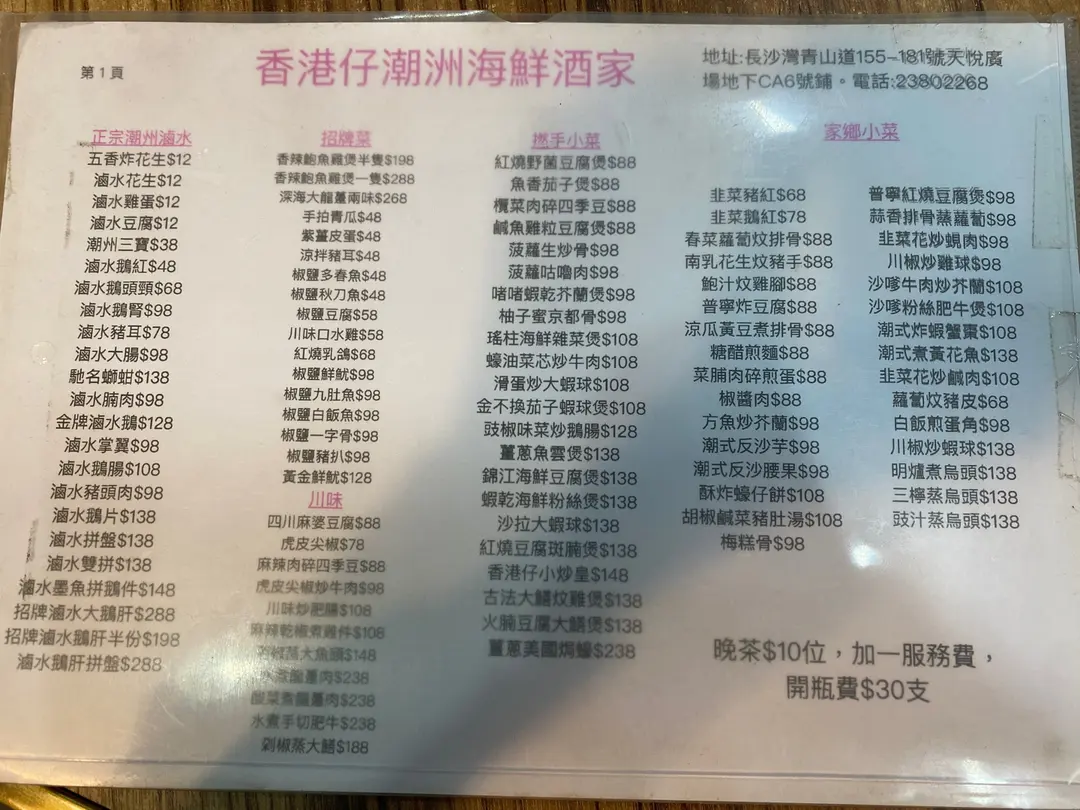 第1頁
香港仔潮洲海鮮酒家
地址:長沙灣青山道155-181號天悅廣
場地下CA6號鋪。電話:23802268
正宗潮州滷水
五香炸花生$12
滷水花生$12
滷水雞蛋$12
滷水豆腐$12
潮州三寶$38
滷水鵝紅$48
滷水鵝頭頸$68
滷水鵝腎$98
滷水豬耳$78
滷水大腸$98
馳名螄蚶$138
滷水腩肉$98
金牌滷水鵝$128
滷水掌翼$98
滷水鵝腸$108
滷水豬頭肉$98
滷水鵝片$138
滷水拼盤$138
滷水雙拼$138
滷水墨魚拼鵝件$148
招牌滷水大鵝肝$288
招牌滷水鵝肝半份$198
滷水鵝肝拼盤$288
招牌菜
香辣鮑魚雞煲半隻$198
香辣鮑魚雞煲一隻$288
深海大龍躉兩味$268
手拍青瓜$48
紫薑皮蛋$48
涼拌豬耳$48
椒鹽多春魚$48
椒鹽秋刀魚$48
椒鹽豆腐$58
川味口水雞$58
紅燒乳鴿$68
椒鹽鮮魷$98
椒鹽九肚魚$98
椒鹽白飯魚$98
椒鹽一字骨$98
椒鹽豬扒$98
黃金鮮魷$128
川味
四川麻婆豆腐$88
虎皮尖椒$78
麻辣肉碎四季豆$88
虎皮尖椒炒牛肉$98
川味炒肥腸$108
麻辣乾椒煮雞件$108
椒蒸大魚頭$148
水煮龍躉肉$238
酸菜煮龍躉肉$238
水煮手切肥牛$238
剁椒蒸大鱔$188
撚手小菜
紅燒野菌豆腐煲$88
魚香茄子煲$88
欖菜肉碎四季豆$88
鹹魚雞粒豆腐煲$88
菠蘿生炒骨$98
菠蘿咕嚕肉$98
啫啫蝦乾芥蘭煲$98
柚子蜜京都骨$98
瑤柱海鮮雜菜煲$108
蠔油菜芯炒牛肉$108
滑蛋炒大蝦球$108
金不換茄子蝦球煲$108
豉椒味菜炒鵝腸$128
薑蔥魚雲煲$138
錦江海鮮豆腐煲$138
蝦乾海鮮粉絲煲$138
沙拉大蝦球$138
紅燒豆腐斑腩煲$138
香港仔小炒皇$148
古法大鱔炆雞煲$138
火腩豆腐大鱔煲$138
薑蔥美國焗蠔$238
家鄉小菜
韭菜豬紅$68
韭菜鵝紅$78
春菜蘿蔔炆排骨$88
南乳花生炆豬手$88
鮑汁炆雞腳$88
普寧炸豆腐$88
涼瓜黃豆煮排骨$88
糖醋煎麵$88
菜脯肉碎煎蛋$88
椒醬肉$88
方魚炒芥蘭$98
潮式反沙芋$98
潮式反沙腰果$98
酥炸蠔仔餅$108
胡椒鹹菜豬肚湯$108
梅糕骨$98
普寧紅燒豆腐煲$98
蒜香排骨蒸蘿蔔$98
韭菜花炒蜆肉$98
川椒炒雞球$98
沙嗲牛肉炒芥蘭$108
沙嗲粉絲肥牛煲$108
潮式炸蝦蟹棗$108
潮式煮黃花魚$138
韭菜花炒鹹肉$108
蘿蔔炆豬皮$68
白飯煎蛋角$98
川椒炒蝦球$138
明爐煮烏頭$138
三檸蒸烏頭$138
豉汁蒸烏頭$138
晚茶$10位，加一服務費，
開瓶費$30支